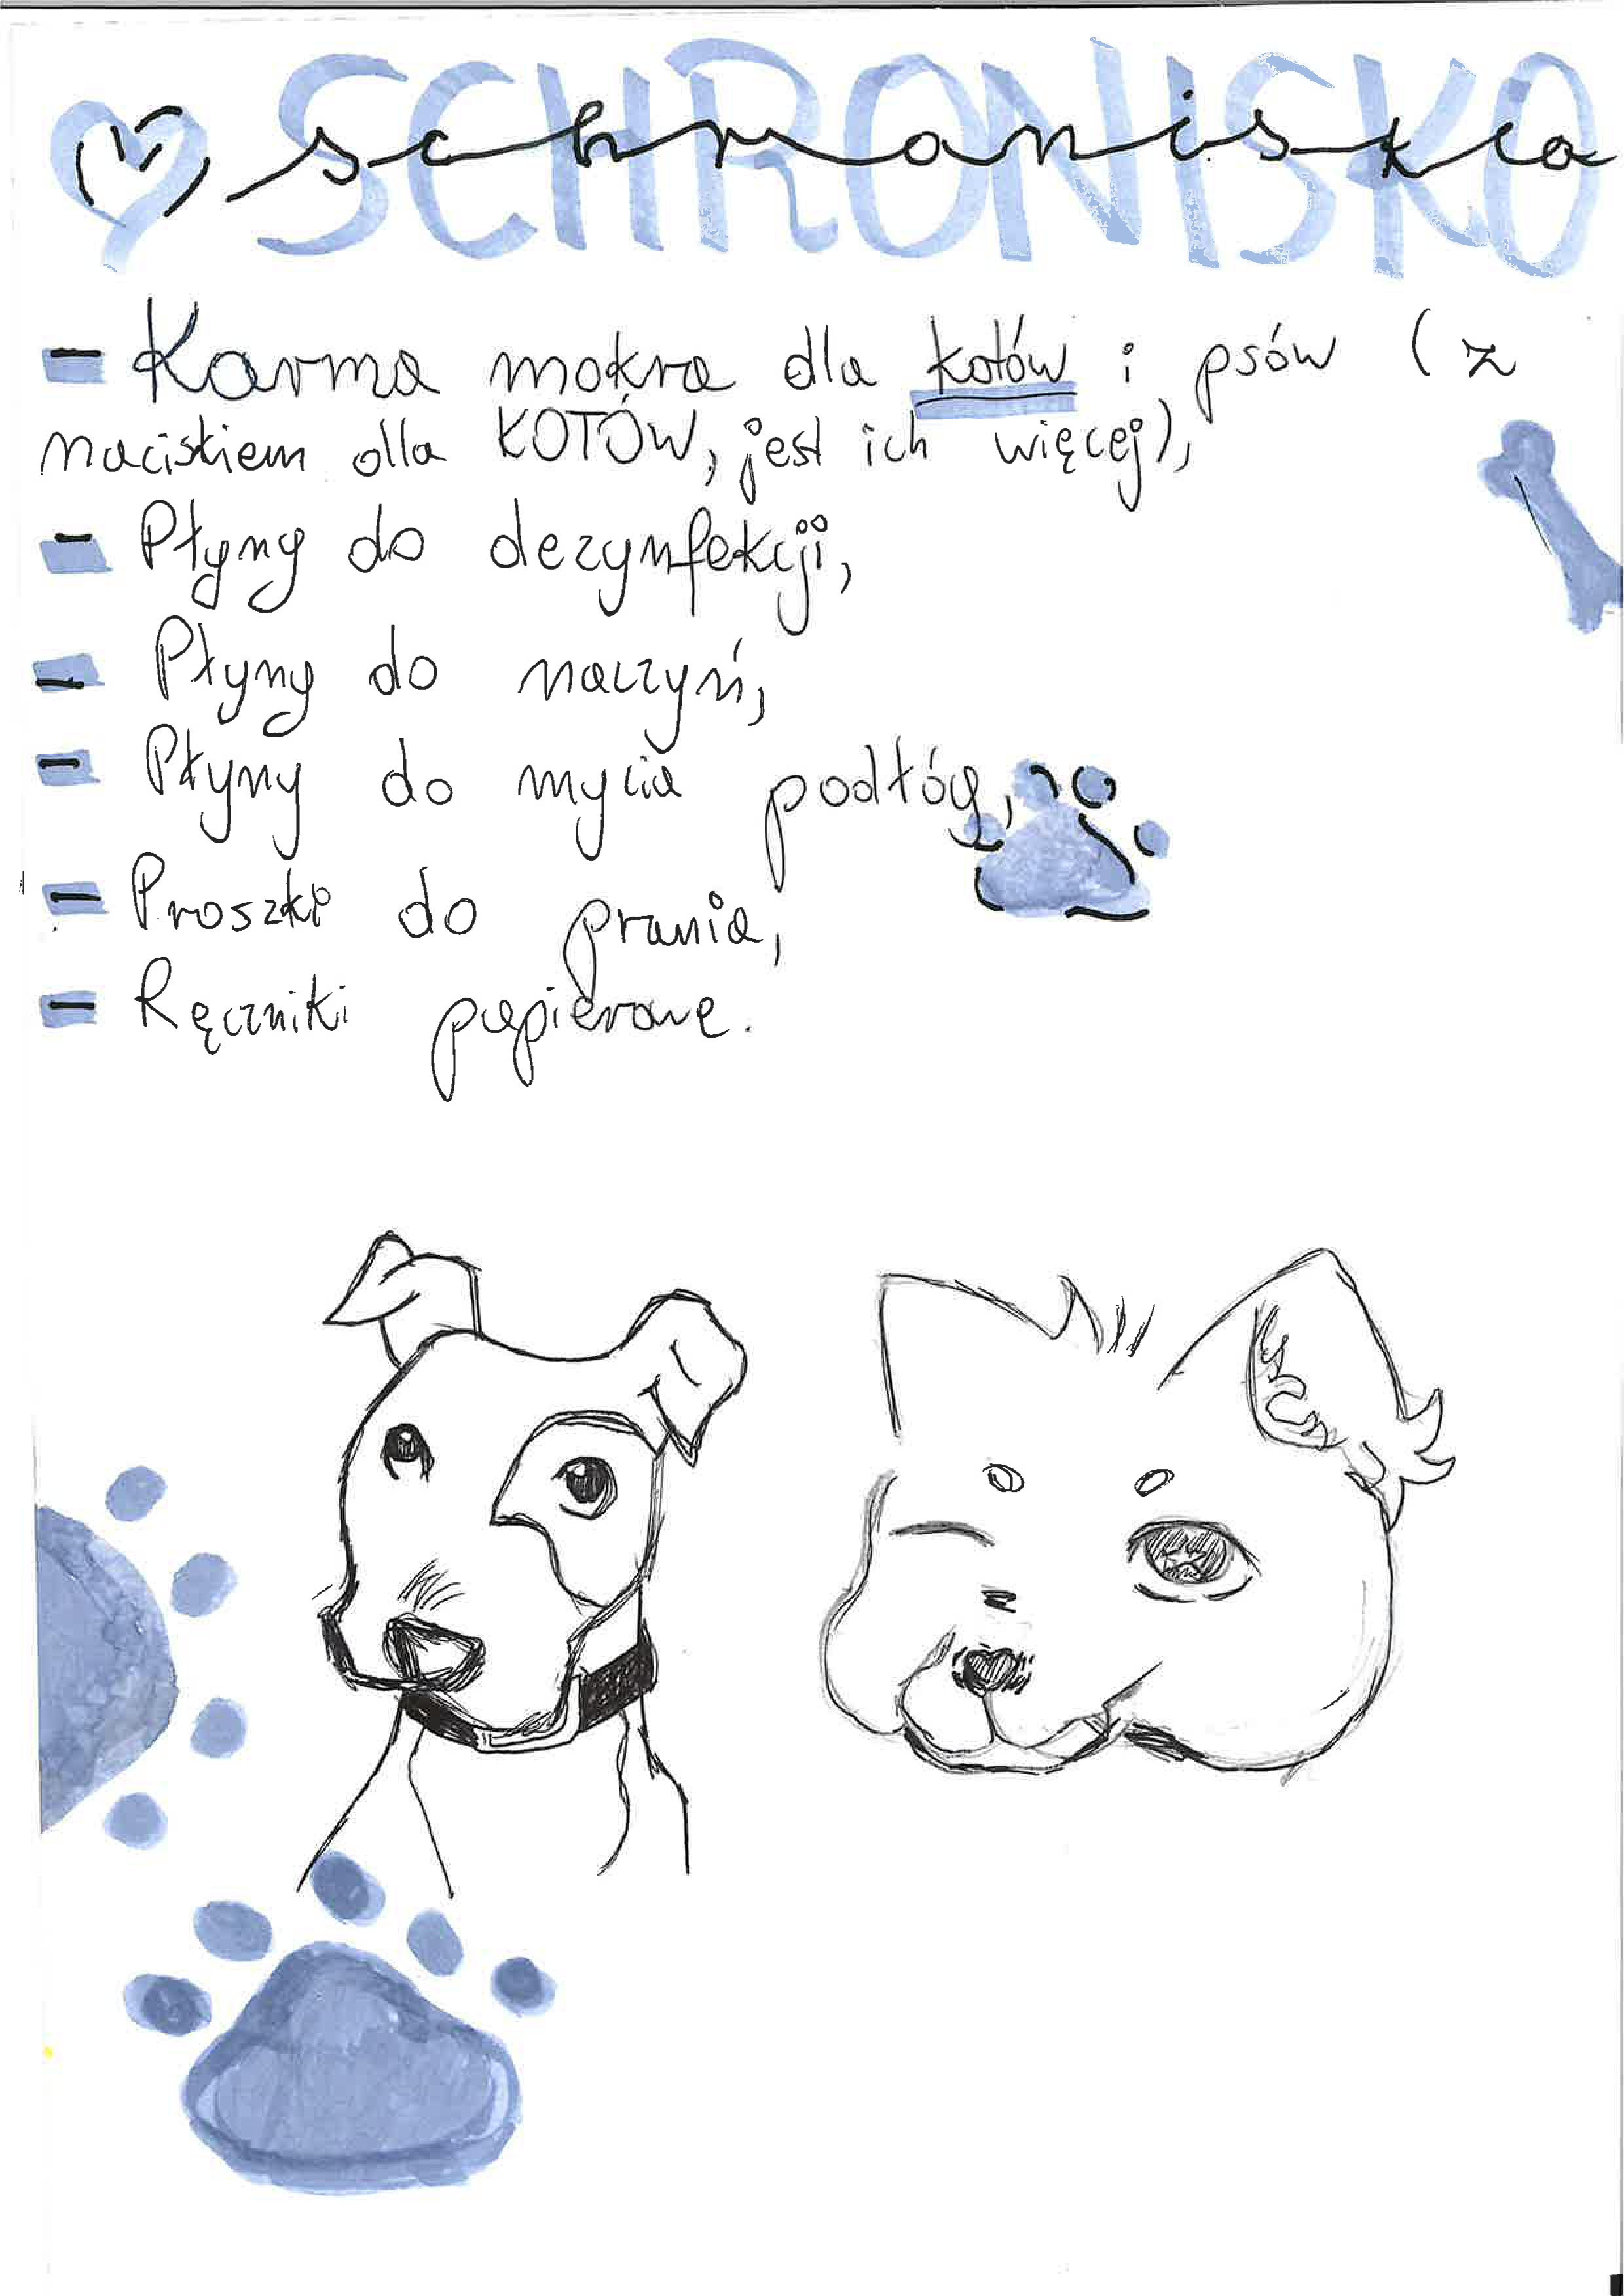 SCHRONISKO
schronisko
- Karma mokra dla kotów i psów (z
naciskiem dla KOTÓW, jest ich więcej),
- Płyny do dezynfekcji,
- Płyny do naczyń,
- Płyny do mycia podłóg,
- Proszki do prania,
- Ręczniki papierowe.